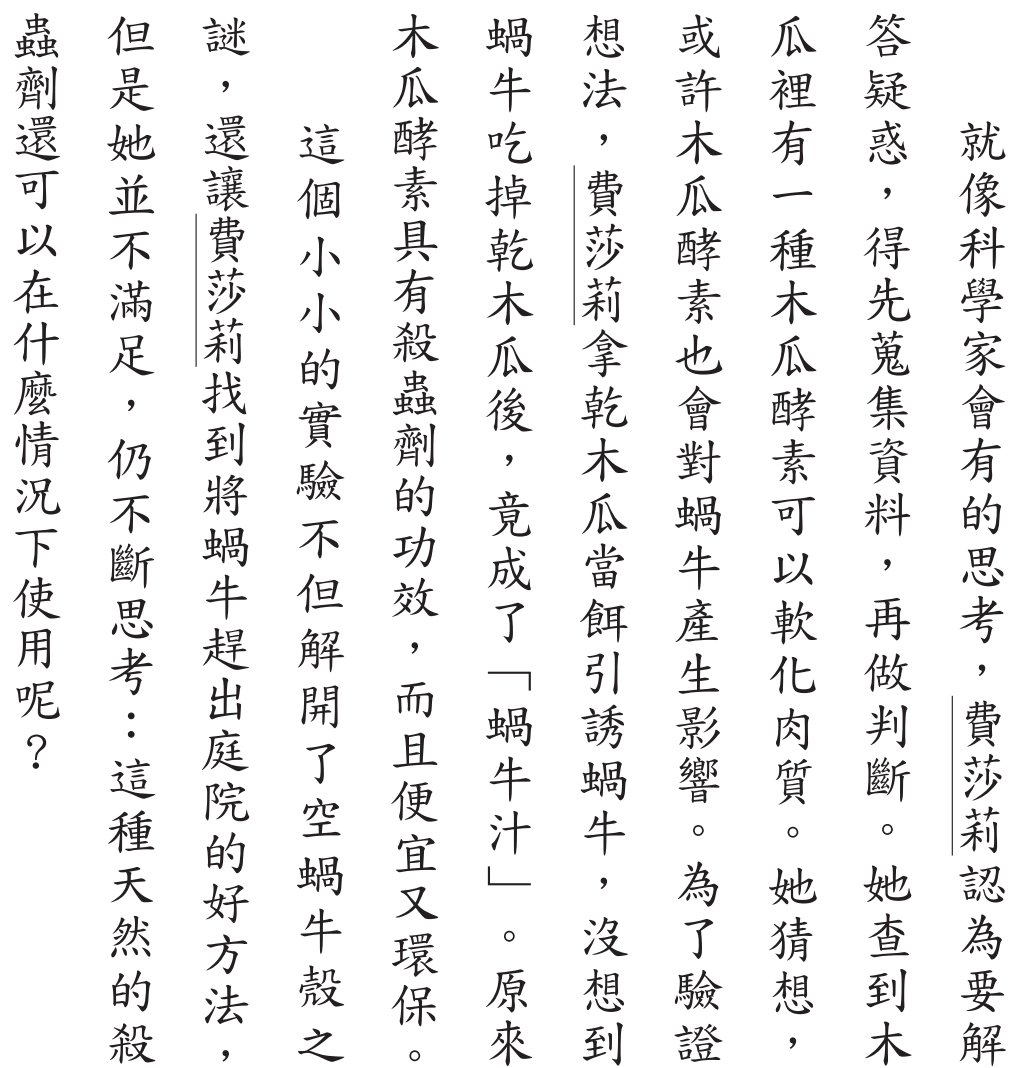 就像科學家會有的思考，費莎莉認為要解
答疑惑，得先蒐集資料，再做判斷。她查到木
瓜裡有一種木瓜酵素可以軟化肉質。她猜想，
或許木瓜酵素也會對蝸牛產生影響。為了驗證
想法，費莎莉拿乾木瓜當餌引誘蝸牛，沒想到
蝸牛吃掉乾木瓜後，竟成了「蝸牛汁」。原來
木瓜酵素具有殺蟲劑的功效，而且便宜又環保。
這個小小的實驗不但解開了空蝸牛殼之
謎，還讓費莎莉找到將蝸牛趕出庭院的好方法，
但是她並不滿足，仍不斷思考：這種天然的殺
蟲劑還可以在什麼情況下使用呢？